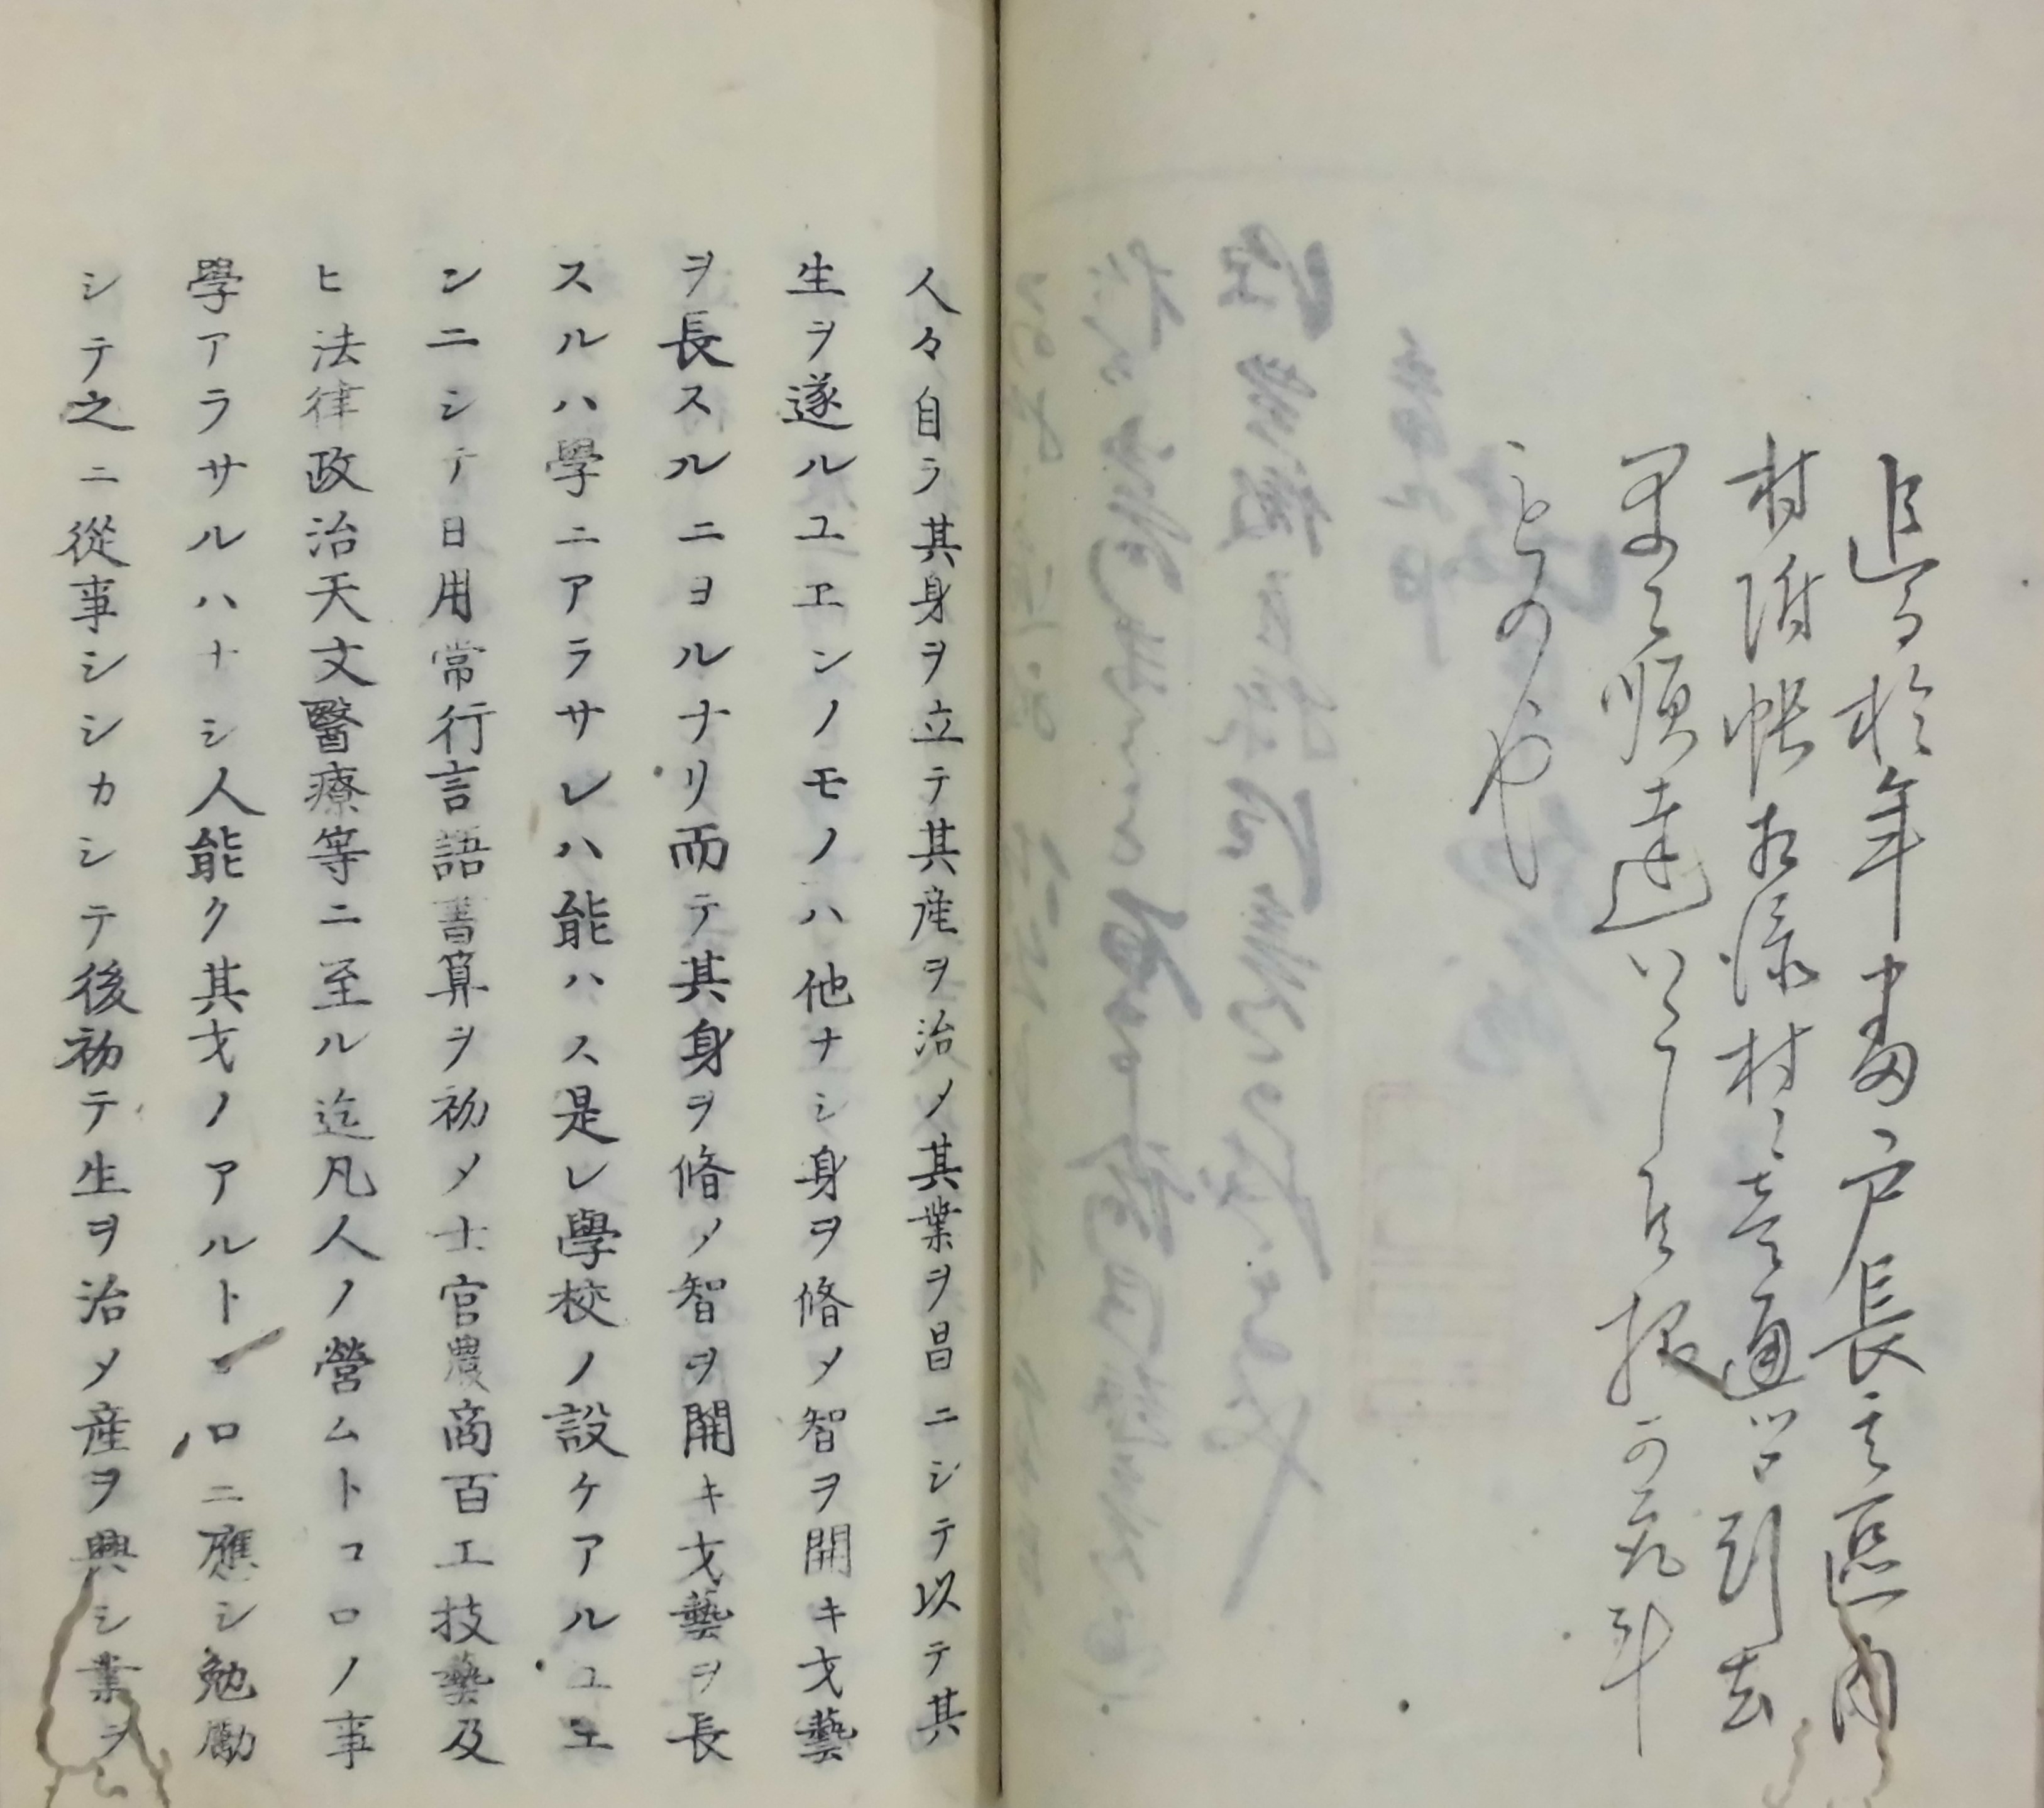 追而於年番戸長其區内
村附帳相添村々壱通ツヽ引去
早々順達いたし
ことのや
人々自ラ其身ヲ立テ其産ヲ治ノ其業ヲ昌ニシテ以テ其
生ヲ遂ルユヱンノモノハ他ナシ身ヲ脩メ智ヲ開キ才藝
ヲ長スルニヨルナリ而テ其身ヲ脩ノ智ヲ開キ才藝ヲ長
スルハ學ニアラサレハ能ハス是レ學校ノ設ケアルユヱ
ンニシテ日用常行言語書算ヲ初メ士官農商百工技藝及
ヒ法律政治天文醫療等ニ至ル迄凡人ノ營ムトコロノ事
學アラサルハナシ人能ク其才ノアルトコロニ應シ勉勵
シテ之ニ從事シシカシテ後初テ生ヲ治メ産ヲ興シ業ヲ